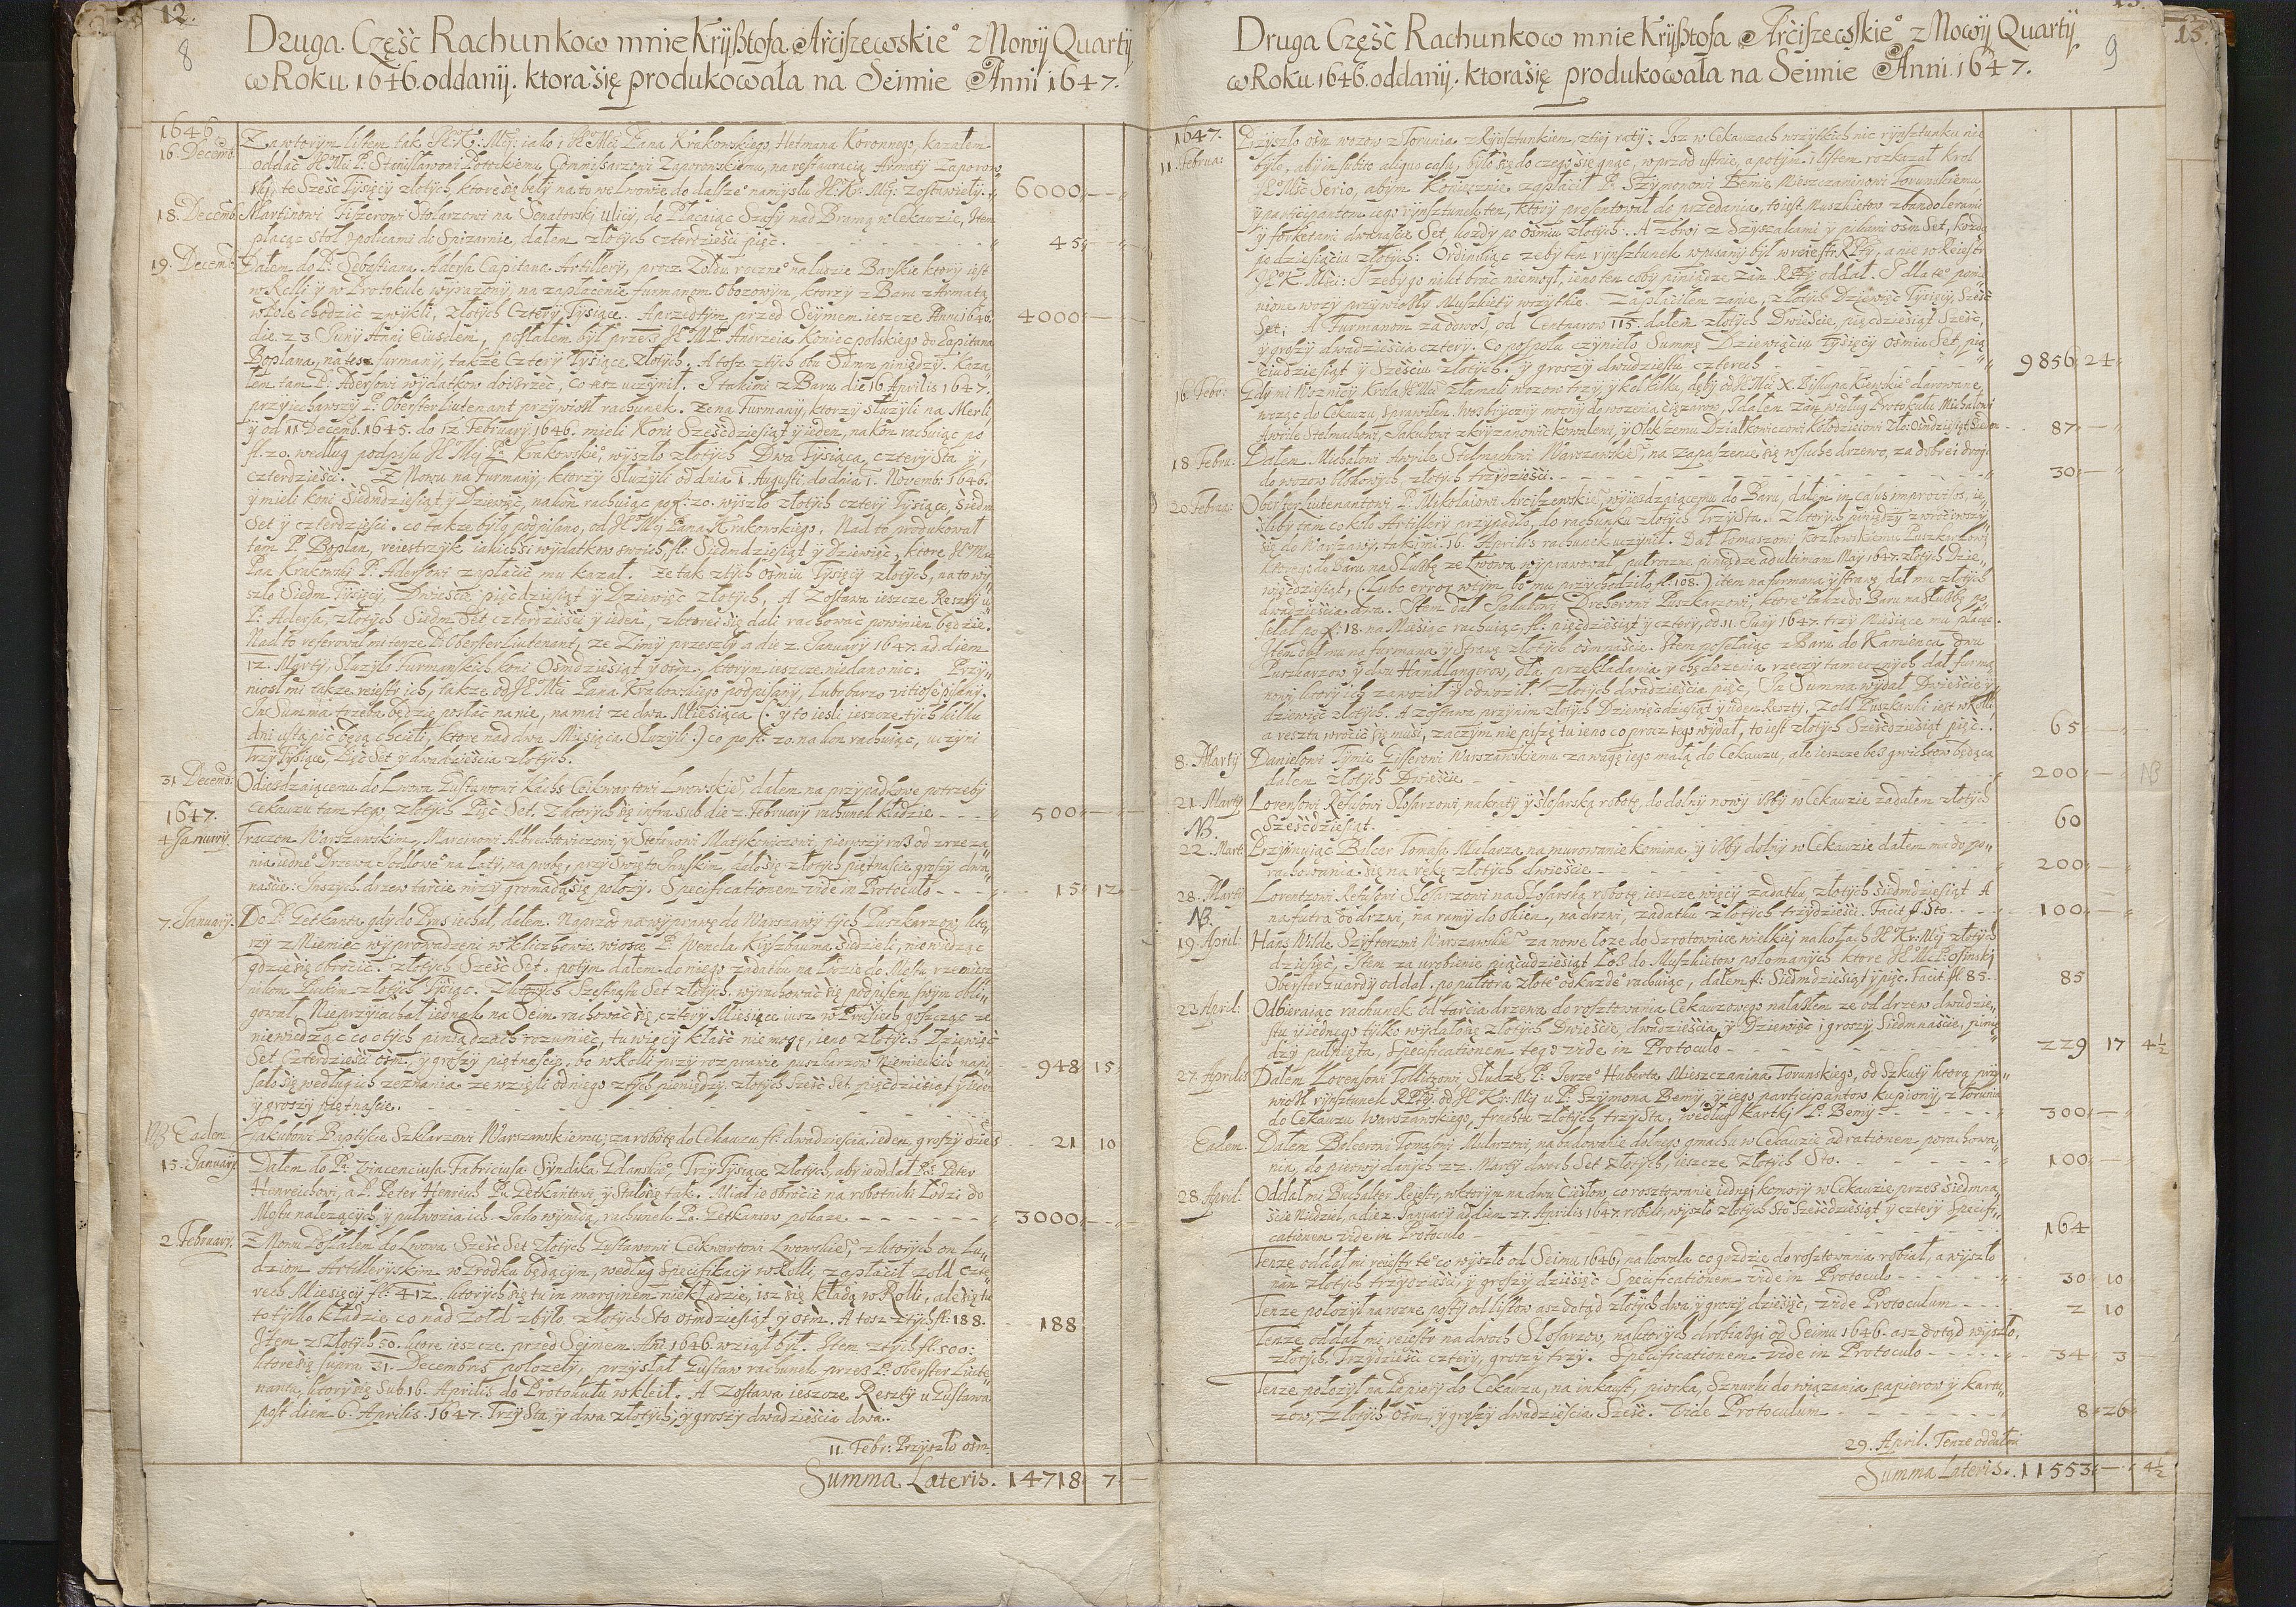 12.
8
Druga Część Rachunkow mnie Kryßtofa Arciszewskie° z Nowÿ Quartÿ
w Roku 1646. oddanÿ. ktora się produkowała na Seimie Anni 1647.
1646
16. Decemb.
Za wtorym listem tak JK°K: Mci: iako i JK°Mci Pana Krakowskiego Hetmana Koronnego, kazałem
oddać JK°Mci P: Stanisławowi Potockiemu, Commissarzowi Zaporowskiemu, na restauracią Armaty Zaporow
skiÿ, te Sześć Tysięcÿ złotych, ktore się były na to we Lwowie do dalsze° namysłu JK°K: Mci: zostawiełÿ. 6000
18. Decemb. Martinowi Fiszerowi Stolarzowi na Senatorskÿ ulicÿ, do Płacaiąc Szafÿ nad Bramą w Cekauzie, Item
płacąc stoł z policami do Spizarnie, dałem złotych czterdzieści pięć. 45
19. Decemb. Dałem do P: Sebastiana Adersa Capitana Artillerÿ, procz Zołdu roczne° na ludzie Barskie ktorÿ iest
w Rolli ÿ w Protokule wyrazonÿ na zapłacenie furmanom Obozowÿm, ktorzÿ z Baru z Armatą
w Pole chodzić zwÿkli, złotych Czterÿ Tysiące. A przedtÿm przed Seÿmem ieszcze Anni 1646. 4000
die 23. Junÿ Anni Eiusdem, posłałem był przez JK°M P. Andrzeia Koniecpolskiego do Capitana
Boplana, na tesz furmanÿ, takze Czterÿ Tysiące złotych. A tosz z tych obu Summ piniędzÿ. Kaza
łem tam P: Adersowi wÿdatkow doirzeć, co tesz uczynił. I takimi z Baru die 16 Aprilis 1647.
przÿiechawszÿ P: Oberster Liutenant przÿwiozł rachunek. Ze na Furmanÿ, ktorzÿ służyli na Merli,
ÿ od 11 Decemb. 1645. do 12. Februarÿ. 1646. mieli Koni Sześćdziesiąt ÿ ieden, na koń rachuiąc po
fl. 20. według podpisu JK°Mci Pa Krakowskie°, wÿszło złotych Dwa Tysiąca, czterÿ Sta ÿ
czterdzieści. Z Nowu na Furmanÿ, ktorzÿ służyli od dnia 1. Augusti, do dnia 1. Novemb: 1646.
ÿ mieli koni Siedmdziesiąt ÿ Dziewięć, na koń rachuiąc po fl: 20. wÿszło złotych czterÿ Tysiące, Siedm
Set ÿ czterdzieści. co takze było podpisano, od JK°Mci Pana Krakowskiego. Nad to produkował
tam P. Boplan, reiestrzÿk iakichsi wÿdatkow swoich, fl: Siedmdziesiąt ÿ Dziewięć, ktore JK°Mc
Pan Krakowski P: Adersowi zapłacić mu kazał. Ze tak z tÿch ośmiu Tysięcÿ złotych, na to wÿ
szło Siedm Tysięcÿ, Dwieście pięćdziesiąt ÿ Dziewięć złotych. A Zostawa ieszcze Resztÿ u
P: Adersa, złotych Siedm Set czterdzieści ÿ ieden, z ktorei się dali rachować powinien będzie.
Nad to referował mi tenze P: Oberster Liutenant, ze Zimÿ przeszłÿ a die 2. Januarÿ 1647. ad diem
12. Martÿ, Służyło Furmańskich koni Ośmdziesiąt ÿ ośm, ktorÿm ieszcze nie dano nic. Przÿ„
niosł mi takze reiestr ich, takze od JK°Mci Pana Krakowskiego podpisanÿ, lubo barzo vitiosè pisanÿ.
In Summa trzeba będzie posłać na nie, na mai ze dwa Miesiąca (: ÿ to iesli ieszcze tÿch kilku
dni ustąpić będą chcieli, ktore nad dwa Miesiąca służyli:) co po fl. 20. na kon rachuiąc, uczÿni
Trzÿ Tysiące, Pięć Set ÿ dwadzieścia złotych.
31 Decemb: Odiezdzaiącemu do Lwowa Gustawowi Kachs Ceikwartowi Lwowskie°, dałem na przÿpadkowe potrzebÿ
Cekauzu tam tego, złotych Pięć Set. Z ktorÿch się infra sub die 2. Februarÿ rachunek kładzie 500
1647.
4 Januarÿ. Traczom Warszawskim, Marcinowi Albrechtowiczowi, ÿ Stefanowi Matÿkowiczowi, pierwszÿ raß od zrzeza„
nia iedne° Drzewa Jodłowe° na łatÿ, na probę, przÿ Swięto Ruskim, dało się złotych piętnaście, groszÿ dwa„
naście. Inszÿch drzew tarcie nizÿ gromadą się połozÿ. Specificationem vide in Protocolo 15 12
7. Januarÿ. Do P: Getkanta, gdÿ do Prus iechał, dałem. Naprzod na wÿprawę do Warszawÿ tÿch Puszkarzow, kto„
rzÿ z Niemiec wÿprowadzeni w Kiiczkowie wiosce P: Wencla Kÿßbauma siedzieli, nie wiedząc
gdzie się obrocić. złotych Sześć Set. potÿm dałem do niego zadatku na Łodzie do Mostu rzemiesz
nikom Puckim złotych Tysiąc. Z ktorych Szesnastu Set złotych. wÿrachować się podpisem swÿm obli„
gował. Nie przÿiachał iednak na Seim rachować się, czterÿ Miesiące iusz w Prusiech goszcząc ze
nie wiedząc co o tÿch piniądzach rozumieć, tu więcÿ kłaść nie mogę, ieno złotych Dziewięć
Set Czterdzieści ośm. ÿ groszÿ piętnaście, bo w Rolli przÿ rozprawie puszkarzow Niemieckich napi„ 948 15
sało się według ich zeznania ze wzięli od niego z tÿch pieniędzÿ, złotych Sześć Set pięćdziesiąt ÿ ieden
ÿ groszÿ piętnaście.
NB Eadem. Jakubowi Baptiście Szklarzowi Warszawskiemu, za robotę do Cekauzu fl: dwadzieścia ieden, groszÿ dzies. 21 10
15. Januarÿ. Dałem do Pa: Vincenciusa Fabriciusa Syndika Gdanskie°, Trzÿ Tysiące złotych, abÿ ie oddał Pu: Peter
Henreichowi, a P: Peter Henreich Pu Getkantowi, ÿ Stało się tak. Miał ie obrocić na robotniki Łodzi do
Mostu nalezącÿch, ÿ pułwozia ich. Jako wÿnidą, rachunek Pa. Getkantow pokaze 3000
2. Februarÿ. Z Nowu Posłałem do Lwowa Sześć Set złotych Gustawowi Ceikwartowi Lwowskie°, z ktorÿch on Lu„
dziom Artillerÿiskim w Grodku będącÿm, według Specifikacÿ w Rolli, zapłacił zołd czte„
rech Miesięcÿ fl: 412. ktorÿch się tu in marginem nie kładzie, isz się kładą w Rolli, ale się tu
to tÿlko kładzie co nad żołd zbÿło, złotych Sto ośmdziesiąt ÿ ośm. A tosz z tÿch fl: 188. 188
Item z złotych 50. ktore ieszcze przed Seimem Ani 1646. wziął bÿł. Item z tÿch fl: 500:
ktore się supra 31. Decembris położełÿ, przÿsłał Gustaw rachunek przez P: Oberster Liute
nanta, ktorÿ się Sub 16. Aprilis do Protokułu wkleił. A Zostawa ieszcze Resztÿ u Gustawa
post diem 6. Aprilis. 1647. Trzÿ Sta ÿ dwa złotych, ÿ groszÿ dwadzieścia dwa.
11. Febr: Przÿszło ośm
Summa Lateris. 14718 7
9
15.
Druga Część Rachunkow mnie Kryßtofa Arciszewskie° z Nowÿ Quartÿ
w Roku 1646. oddanÿ. ktora się produkowała na Seimie Anni. 1647.
1647.
11. Februa: Przÿszło ośm wozow z Torunia z Rÿnsztunkiem, z tiej ratÿ: Isz w Cekauzach wszÿtkich nic rÿnsztunku nie
było, abÿ in subito aliquo casu, było się do czego się gnąć, wprzod ustnie, a potÿm i listem rozkazał Krol
JK°Mść Serio, abÿm koniecznie zapłacił P: Szÿmonowi Bemie, Mieszczaninowi Torunskiemu,
ÿ participantom iego rÿnsztunek ten, ktorÿ presentował do przedania, to iest Muszkietow z bandolerami
ÿ forketami dwanaście Set, kozdÿ po Ośmiu złotych: A zbroi z Szÿszakami ÿ pikami ośm Set, kozdą
po dziesiąciu złotych: Ordinuiąc zebÿ ten rÿnsztunek wpisanÿ bÿł w reiestr RPtÿ, a nie w Reiestr
JK°K: Mści: I zebÿ go nikt brać nie mogł, ieno ten cobÿ piniądze zań RPtÿ oddał. I dla te° pom„
nione wozÿ przÿwiozłÿ Muszkietÿ wszÿtkie. Zapłaciłem zanie, złotych Dziewięć Tysięcÿ, Sześć
Set; A Furmanom za dowoz, od Centnarow 115. dałem złotych Dwieście, pięćdziesiąt Sześć,
ÿ groszÿ dwadzieścia czterÿ. Co pospołu czÿnieło Summę Dziewiąciu Tysięcÿ ośmiu Set, pię
ćiudziesiąt ÿ Sześciu złotych. ÿ groszÿ dwudziestu czterech 9856 24
16. Febr: Gdÿ mi Woznicÿ Krola JK°Mci złamali wozow trzÿ ÿ koł kilka, dębÿ od JK°Mci X. Biskupa Kiiewskie° darowane,
wożąc do Cekauzu, sprawiłem Wos brÿcznÿ mocnÿ do wozenia ciężarow, I dałem zań według Protokułu Michałowi
Awrile Stelmachowi, Jakubowi z krÿzanowic kowalowi, ÿ Olbrzemu Działkowiczowi Kołodzieiowi złot: Ośmdziesiąt Siedm 87
18. Febru: Dałem Michałowi Awrile Stelmachowi Warszawskie°, na zapaszenie się w suche drzewo, za dobre i drogi
do wozow blokowÿch, złotych trzÿdzieści. 30
20. Februa: Oberster Liutenantowi P: Mikołaiowi Arciszewskie° wÿiezdzaiącemu do Baru, dałem in casus improvisos, ie„
slibÿ tam co koło Artillerÿ przÿpadło, do rachunku złotych Trzÿ Sta. Z ktorÿch piniędzÿ zwrociwszÿ
się do Warszawÿ, takimi. 16. Aprilis rachunek uczÿnił. Dał Tomaszowi Kozłowskiemu Puszkarzowi,
ktorego do Baru na Służbę ze Lwowa wÿprawował pułroczne piniądze ad ultimam Maÿ 1647. złotych Dzie„
więćdziesiąt, (: Lubo error w tÿm bo mu przÿchodziło fl: 108:) item na furmana ÿ strawę dał mu złotych
dwadzieścia dwa. Item dał Jakubowi Dreherowi Puszkarzowi, ktore° takze do Baru na służbę po„
słał po fl: 18. na Miesiąc rachuiąc, fl: pięćdziesiąt ÿ czterÿ, od 11. Junÿ 1647. trzÿ Miesiące mu płacąc.
Item dał mu na furmana ÿ strawę złotych ośmnaście. Item posełaiąc z Baru do Kamieńca dwu
Puszkarzow ÿ dwu Handlangerow, dla przekładania ÿ chędożenia rzeczÿ tamecznÿch dał furma
nowi ktorÿ ich zawoził ÿ odwoził złotych dwadzieścia pięć. In Summa wÿdał Dwieście ÿ
dziewięć złotych. A zostawa przÿ nim złotych Dziewięćdziesiąt ÿ ieden Resztÿ, Zołd Puszkarski iest w Rolli,
a reszta wrocić się musi, zaczÿm nie piszę tu ieno co procz tego wÿdał, to iest złotych Sześćdziesiąt pięć. 65
8. Martÿ Danielowi Tÿm Gisserowi Warszawskiemu za wagę iego małą do Cekauzu, ale ieszcze bez gwichtow będącą
dałem złotych Dwieście 200 NB
21. Martÿ Lorensowi Refusowi Slosarzowi, na kratÿ ÿ slosarską robotę, do dolnÿ nowÿ izbÿ w Cekauzie zadałem złotych
NB. Sześćdziesiąt. 60
22. Mart: Przÿimuiąc Balcer Tomasa Mularza, na murowanie komina, ÿ izbÿ dolnÿ w Cekauzie dałem mu do po„
rachowania się na rękę złotych dwieście 200
28. Martÿ Lorentzowi Refusowi Slosarzowi na Slosarską robotę ieszcze więcÿ zadatku, złotych Siedmdziesiąt. A
NB. na futra do drzwi, na ramÿ do okien, na drzwi, zadatku złotych trzÿdzieści. Facit fl. Sto. 100
19. April: Hans Wilde, Szÿfterowi Warszawskie° za nowe łoze do Szrotownice wielkiej na kołach JK°Kr: Mci złotych
dziesięć, Item za urobienie pięćiudziesiąt Łoż do Muszkietow połomanÿch ktore JK°Mc P: Osinski
Oberster Gwardÿ oddał. po pułtora złote° od kazde° rachuiąc, dałem fl: Siedmdziesiąt ÿ pięć. Facit fl. 85. 85
23. April: Odbieraiąc rachunek od tarcia drzewa do rosztowania Cekauzowego nalazłem ze od drzew dwudzie„
stu ÿ iednego tÿlko wÿdało się złotych Dwieście, dwadzieścia, ÿ Dziewięć i groszÿ Siedmnaście, pienię
dzÿ pułpięta, Specificationem tego vide in Protocolo 229 17 4½
27. Aprilis Dałem Lorensowi Tollitzowi, Słudze P: Jerze° Huberta Mieszczanina Torunskiego, od Szkutÿ ktorą przÿ„
wiozł rÿnsztunek RPtÿ. od JK°Kr: Mci u P: Szÿmona Bemÿ, ÿ iego participantow kupionÿ, z Torunia
do Cekauzu Warszawskiego, frachtu złotych trzÿ Sta, według kartkÿ P: Bemÿ 300
Eadem. Dałem Balcerowi Tomasowi Mularzowi, na budowanie dolnego gmachu w Cekauzie ad rationem porachowa„
nia, do pierwÿ danÿch 22. Martÿ dwoch Set złotych, ieszcze złotych Sto. 100
28. April: Oddał mi Buchalter Reiestr, w ktorÿm na dwu Cieslow, co rosztowanie iednej komorÿ w Cekauzie przez siedmna„
ście Niedziel, a die 2. Januarÿ ad diem 27. Aprilis 1647. robili, wÿszło złotych Sto Sześćdziesiąt ÿ czterÿ Specifi„
cationem vide in Protocolo 164
Tenze oddał mi reiestr te° co wÿszło od Seimu 1646, na kowala co gozdzie do rosztowania robiał, a wÿszło
nań złotych trzÿdzieści, ÿ groszÿ dziesięć Specificationem vide in Protocolo 30 10
Tenze położÿł na rozne posłÿ od listow asz dotąd złotych dwa, ÿ groszÿ dziesięć, vide Protocolum 2 10
Tenze oddał mi reiestr na dwoch Slosarzow, na ktorych drobiazgi od Seimu 1646. asz dotąd wÿszło,
złotych. Trzÿdzieści czterÿ, groszÿ trzÿ. Specificationem vide in Protocolo 34 3
Tenze położÿł na Papierÿ do Cekauzu, na inkaust, piorka, Sznurki do wiązania papierow ÿ kartu„
zow, złotych ośm, ÿ groszÿ dwadzieścia Sześć. Vide Protocolum 8 26
29. April. Tenze oddał mi
Summa Lateris. 11553 4½